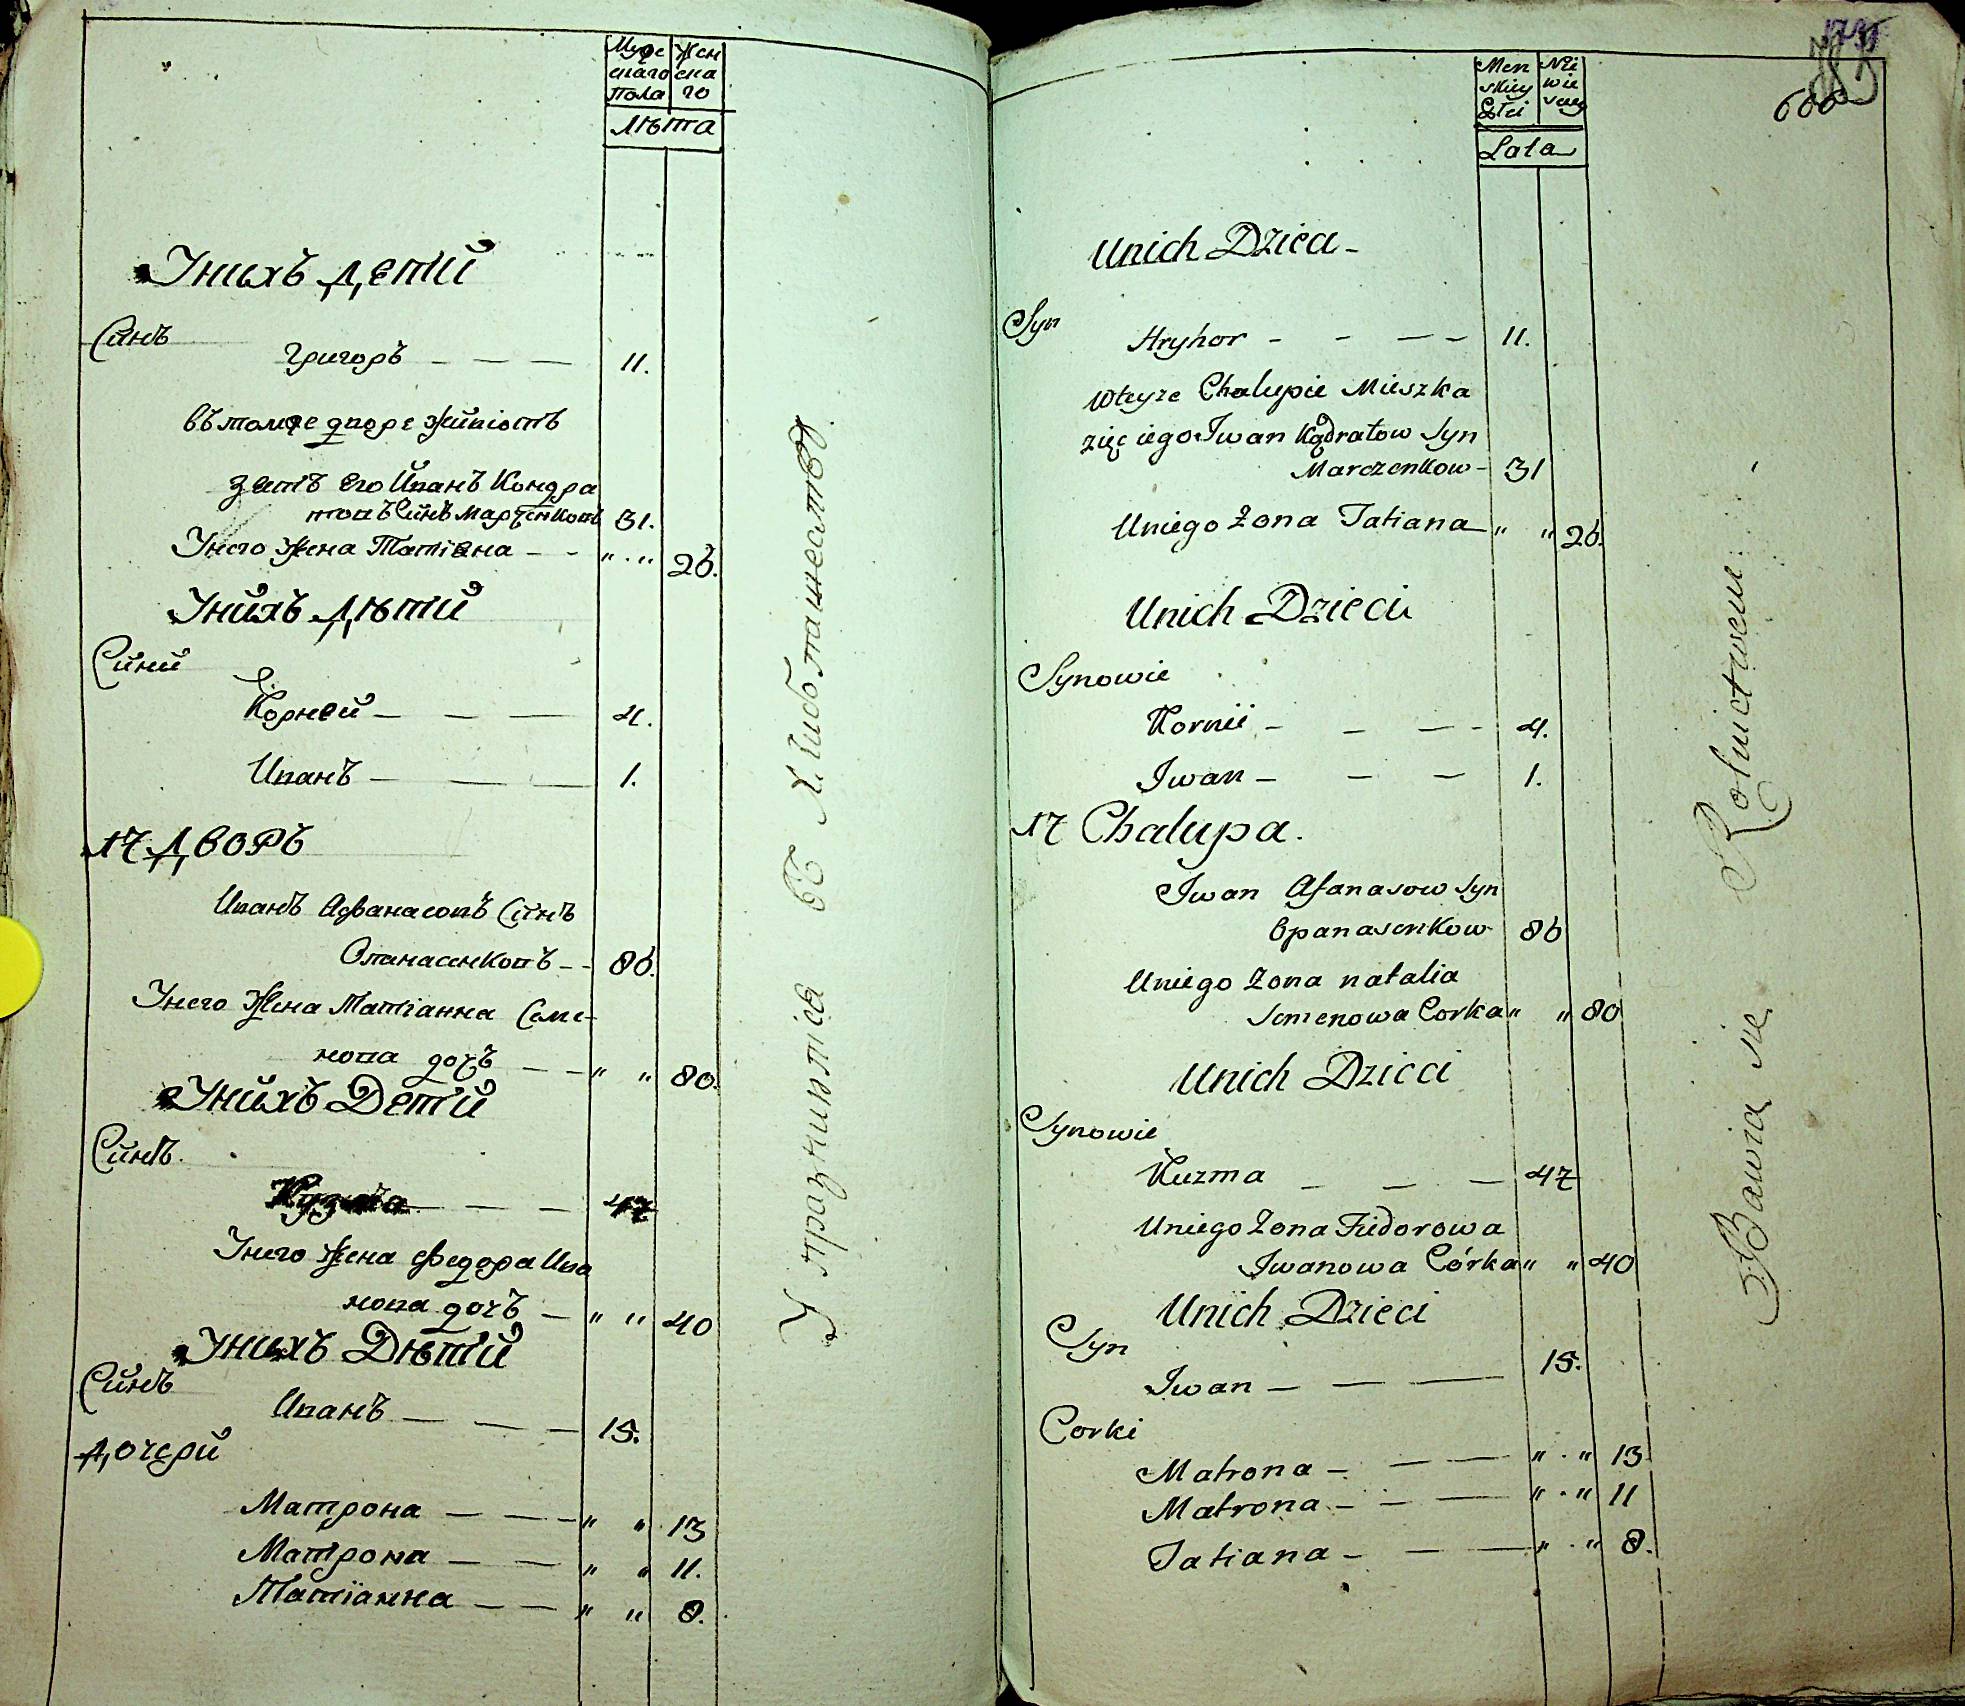 Муже Жен
скаго ска
пола го
Лѣта
Унихъ дети
Синъ
Григоръ — — — 11.
въ томже дворе живіотъ
зятъ его Иванъ Кондра
товъ Синъ Марченковъ 31.
Унего Жена Татіана — - " . " 26.
Унихъ дѣти
Сини
Корней — — — 4.
Иванъ — — — 1.
17 дворъ
Иванъ Афанасовъ Синъ
Опанасенковъ — - 86.
Унего Жена Наталіа Семе-
нова дочъ — — " " 80.
Унихъ Дети
Синъ.
Кузма — — — 47
Унего Жена Федора Ива
нова дочъ — " " 40
Унихъ Дѣти
Синъ
Иванъ — — — 15.
дочери
Матрона — — — " " 13
Матрона — — — " " 11.
Татіанна — — " " 8.
Упражниютса въ Хлибопашествѣ
660
Men Nie
skiey wie
Płci sciey
Lata
Unich Dzieci -
Syn
Hryhor - - — - 11.
Wteyze Chalupie Mieszka
zięc iego Iwan Kądratow Syn
Marczenkow - 31
Uniego Zona Tatiana — " " 26.
Unich Dzieci
Synowie
Kornii - — — - 4.
Iwan — — — 1.
17 Chalupa.
Iwan Afanasow Syn
Opanasenkow 86
Uniego Zona natalia
Semenowa Corka " " 80
Unich Dzieci
Synowie
Kuzma — — — 47
Uniego Zona Fiedorowa
Iwanowa Córka " " 40
Unich Dzieci
Syn
Iwan — — — 15.
Corki
Matrona - — — " . " 13
Matrona - - — " . " 11
Tatiana - — — " . " 8.
Bawia się Rolnictwem